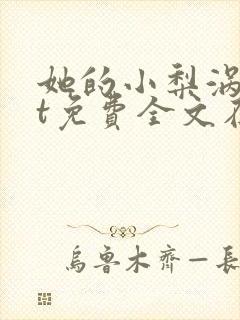 她的小梨涡
t免費全文
烏魯木齊—長